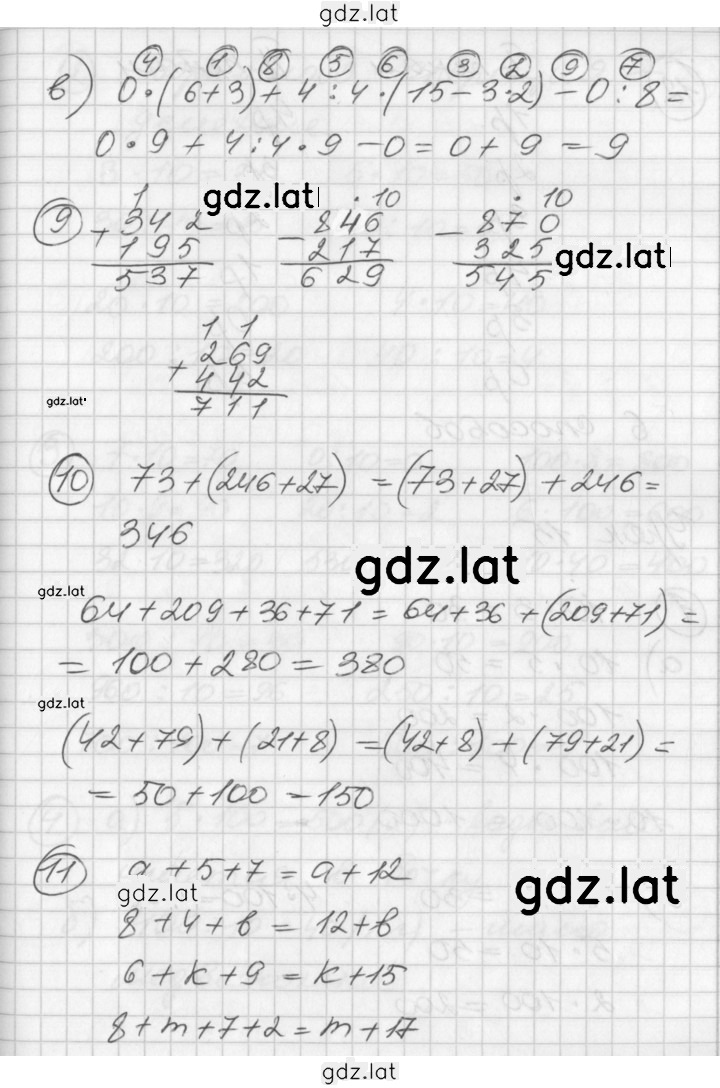 gdz.lat
④ ① ⑧ ⑤ ⑥ ③ ② ⑨ ⑦
в) 0·(6+3)+4:4·(15-3·2)-0:8=
0·9+4:4·9-0=0+9=9
gdz.lat
1 · 10 · 10
⑨ + 342 - 846 - 870
195 217 325
537 629 545
gdz.lat
1 1
+ 269
442
711
gdz.lat
⑩ 73+(246+27) =(73+27)+246=
346
gdz.lat
gdz.lat
64+209+36+71=64+36+(209+71)=
=100+280=380
gdz.lat
(42+79)+(21+8) =(42+8)+(79+21)=
=50+100-150
⑪ a+5+7=a+12
gdz.lat
gdz.lat
8+4+в=12+в
6+к+9=к+15
8+m+7+2=m+17
gdz.lat